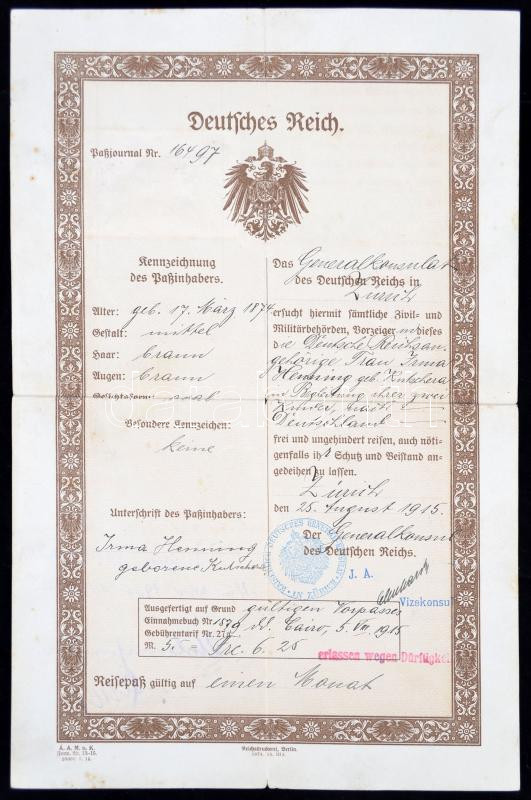 Deutsches Reich.
Paßjournal Nr. 16497
Kennzeichnung
des Paßinhabers.
Alter: geb. 17. März 1874
Gestalt: mittel
Haar: braun
Augen: braun
Gesichtsform: oval
Besondere Kennzeichen:
keine
Unterschrift des Paßinhabers:
Irma Henning
geborene Kutschera
Das Generalkonsulat
des Deutschen Reichs in
Zürich
ersucht hiermit sämtliche Zivil- und
Militärbehörden, Vorzeiger in dieses
die Deutsche Reichsan-
gehörige Frau Irma
Henning geb. Kutschera
in Begleitung ihrer zwei
Kinder, nach
Deutschland
frei und ungehindert reisen, auch nötig-
enfalls ihr Schutz und Beistand an-
gedeihen zu lassen.
Zürich
den 25. August 1915.
Der Generalkonsul
des Deutschen Reichs.
J. A.
Vizekonsul
KAISERLICH DEUTSCHES GENERALKONSULAT
IN ZÜRICH
Ausgefertigt auf Grund gültigen Vorpasses
Einnahmebuch Nr 1579 dd. Cairo, 5. VII 1915
Gebührentarif Nr. 27a
M. 5.- = Frc. 6.25
erlassen wegen Dürftigkeit
Reisepaß gültig auf einen Monat
A. A. M. u. K.
Reichsdruckerei, Berlin.
darabanth